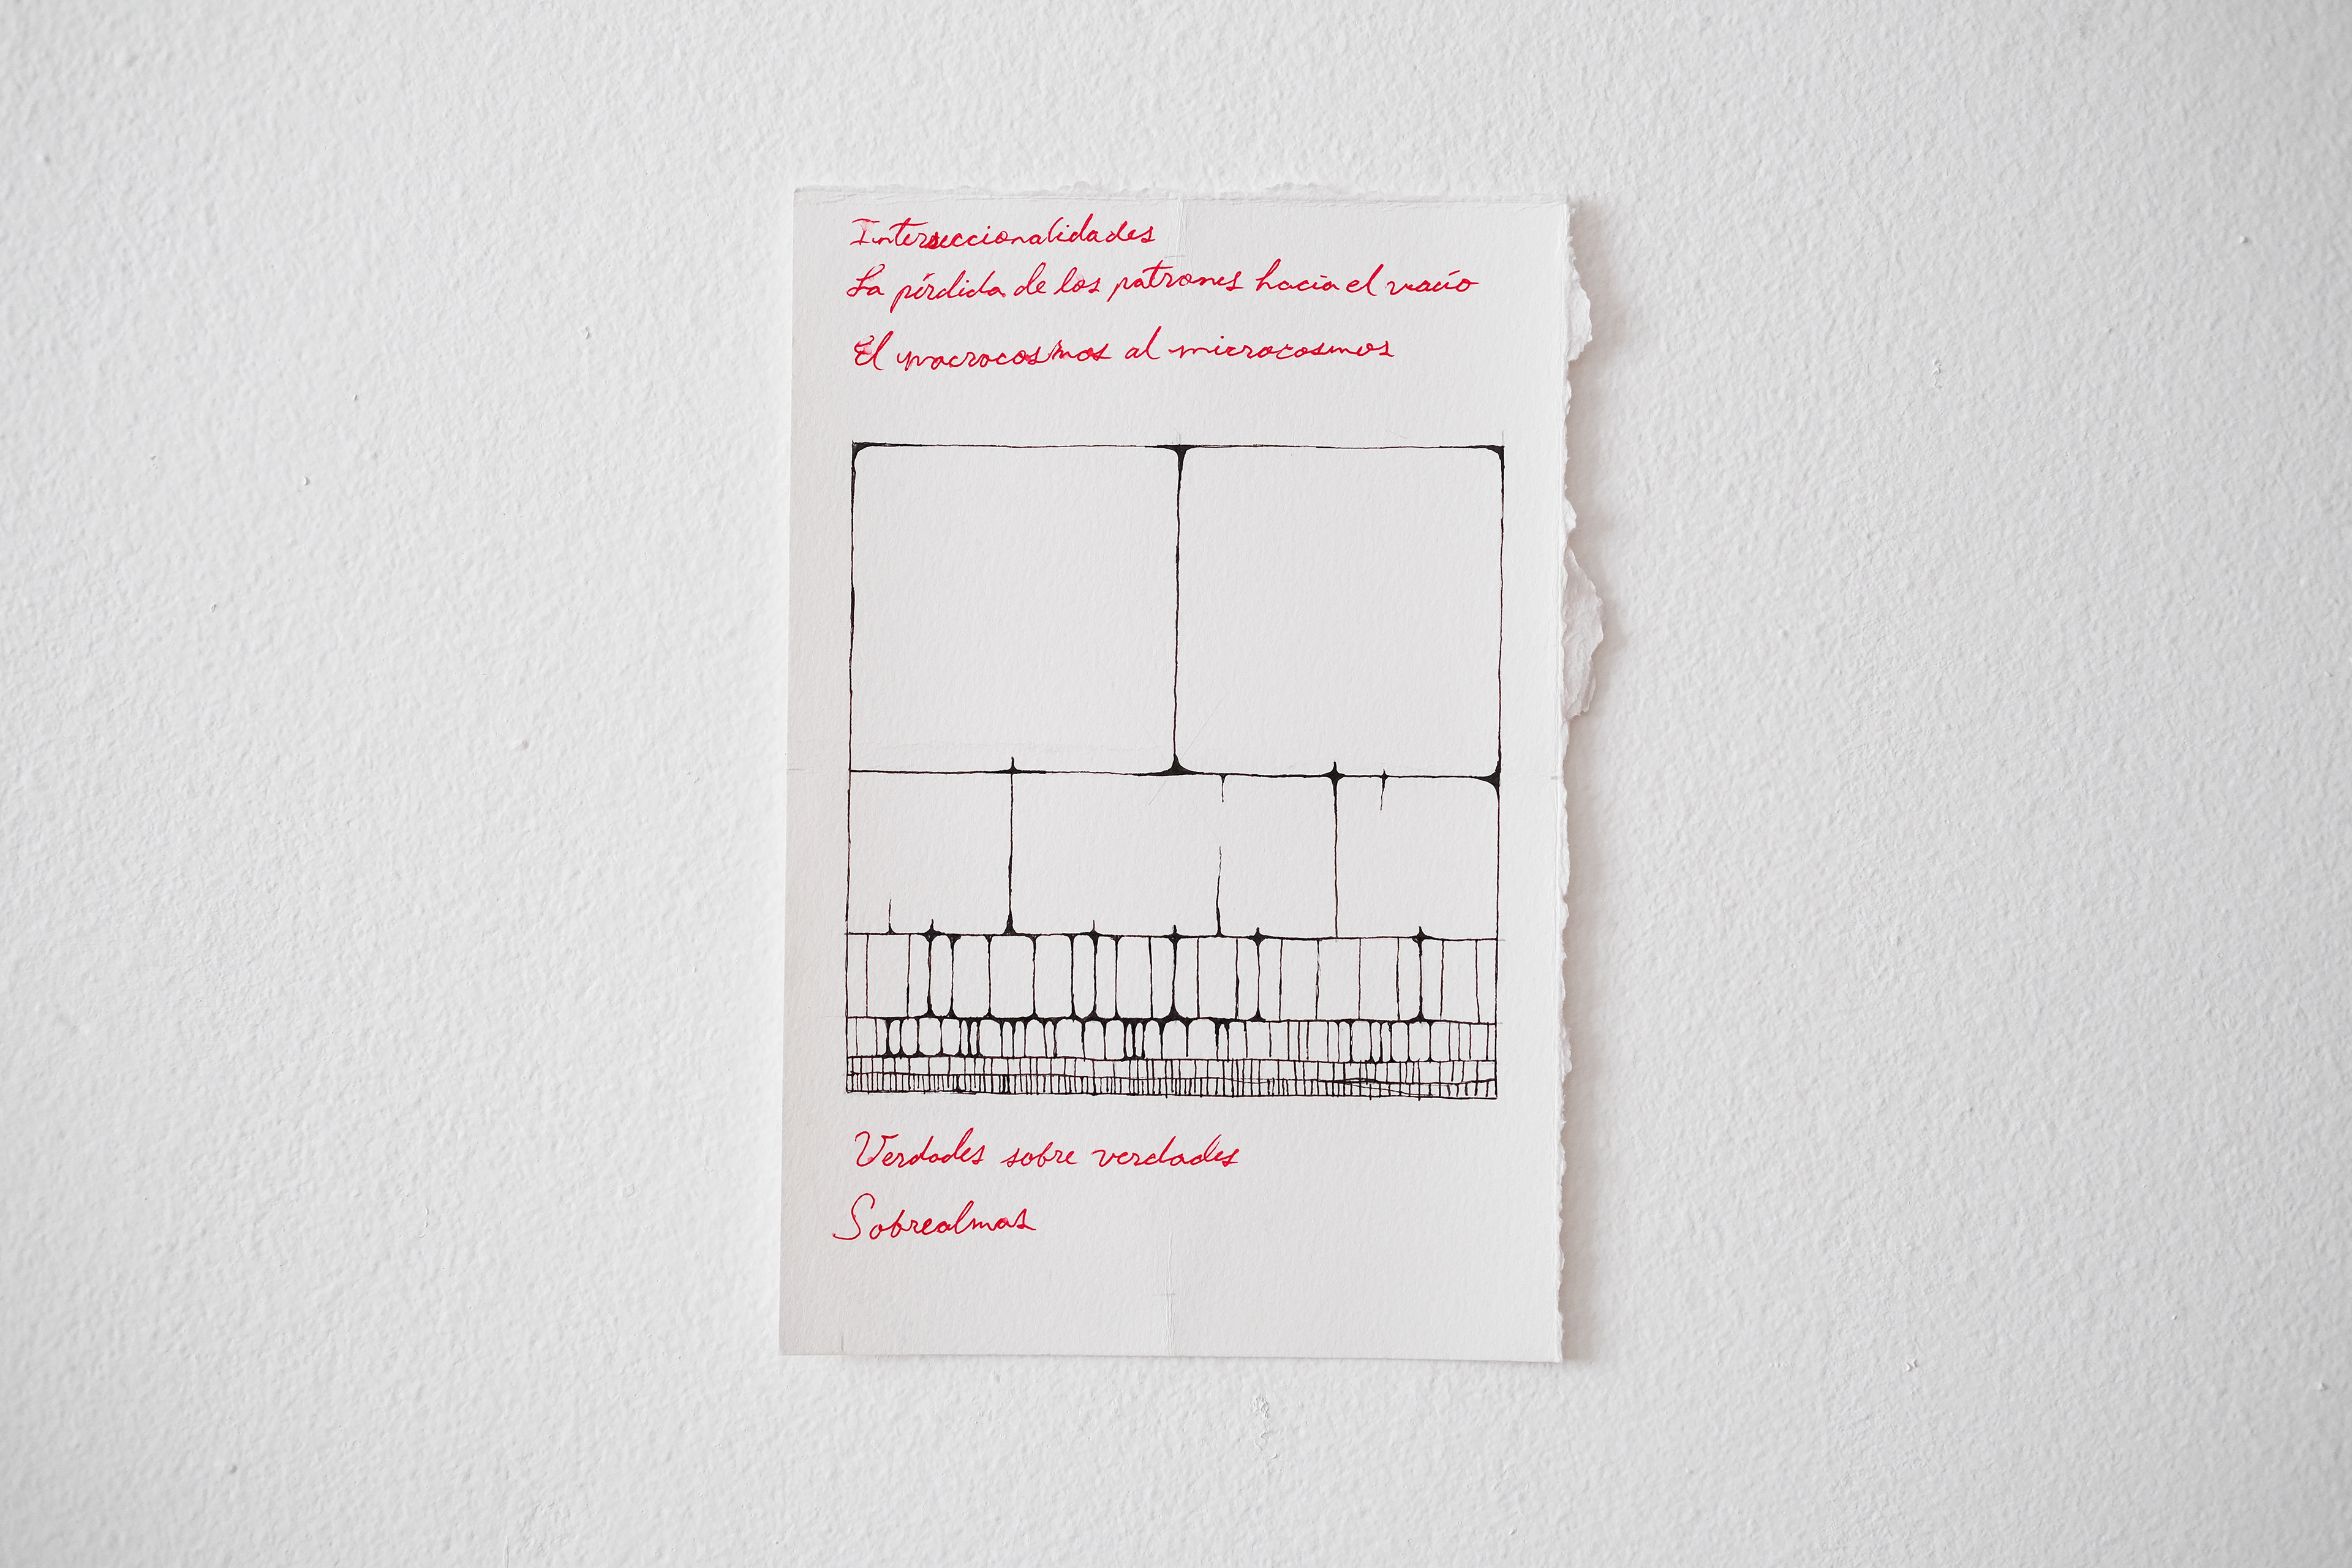 Interseccionalidades
La pérdida de los patrones hacia el vacío
El macrocosmos al microcosmos
Verdades sobre verdades
Sobrealmas